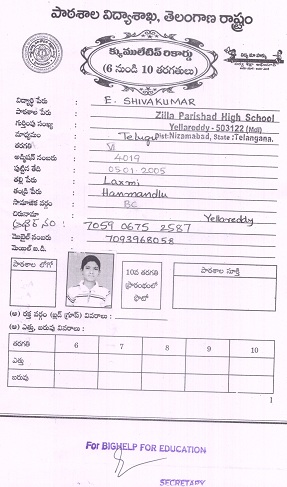 పాఠశాల విద్యాశాఖ, తెలంగాణ రాష్ట్రం
క్యుములేటివ్ రికార్డు
(6 నుండి 10 తరగతులు)
విద్యార్థి పేరు : E. SHIVAKUMAR
పాఠశాల పేరు : Zilla Parishad High School
గుర్తింపు సంఖ్య : Yellareddy - 503122 (Mdl)
మాధ్యమం : Telugu Dist: Nizamabad, State : Telangana.
తరగతి : VI
అడ్మిషన్ నంబరు : 4019
పుట్టిన తేది : 05-01-2005
తల్లి పేరు : Laxmi
తండ్రి పేరు : Hanmandlu
సామాజిక వర్గం : BC
చిరునామా : Yellareddy
ఆధార్ నం : 7059 0675 2587
మొబైల్ నంబరు : 7093968058
మెయిల్ ఐ.డి. :
పాఠశాల లోగో
10వ తరగతి ప్రారంభంలో ఫొటో
పాఠశాల సూక్తి
(అ) రక్త వర్గం (బ్లడ్ గ్రూప్) వివరాలు :
(ఆ) ఎత్తు, బరువు వివరాలు :
తరగతి 6 7 8 9 10
ఎత్తు
బరువు
1
For BIGHELP FOR EDUCATION
SECRETARY